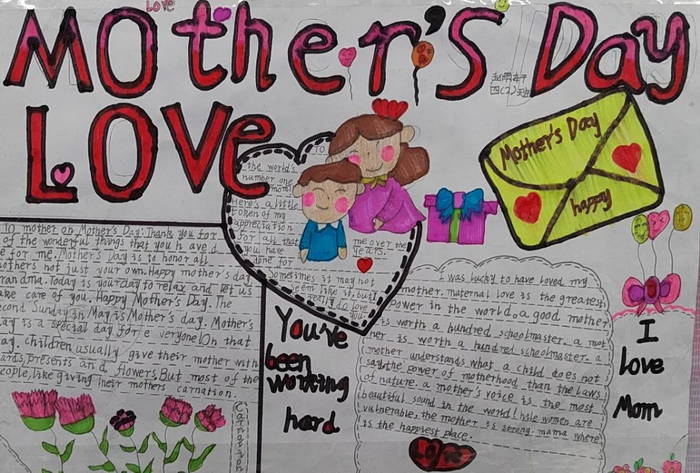 Love
MOther's Day
LOVe
四(2)班
TO
the world's
number one
mom!
Here's a little
token of my
appreciation
for all that
you have
done for
me over the
years.
Sometimes it may not
seem like it, but
I really do love
Mother's Day
happy
To mother on Mother's Day: Thank you for
of the wonderful things that you have d
e for me. Mother's Day is to honor all
others not just your own. Happy mother's day
randma. Today is your day to relax and let us
ake care of you. Happy Mother's Day. The
econd Sunday in May is Mother's day. Mother's
ay is a special day for e veryone. On that
ay, children usually give their mother with
ards, presents and flowers. But most of the
eople, like giving their mothers carnation.
Carnation
You've
been
working
hard
I was lucky to have loved my
mother. maternal love is the greatest
Power in the world. a good mother
is worth a hundred schoolmaster. a mot
her is worth a hundred schoolmaster. a
mother understands what a child does not
say. the power of motherhood than the laws
of nature. a mother's voice is the most
beautiful sound in the world! hsle women are
vulnerable, the mother is strong. mama where
is the happiest place.
Love
I
Love
Mom